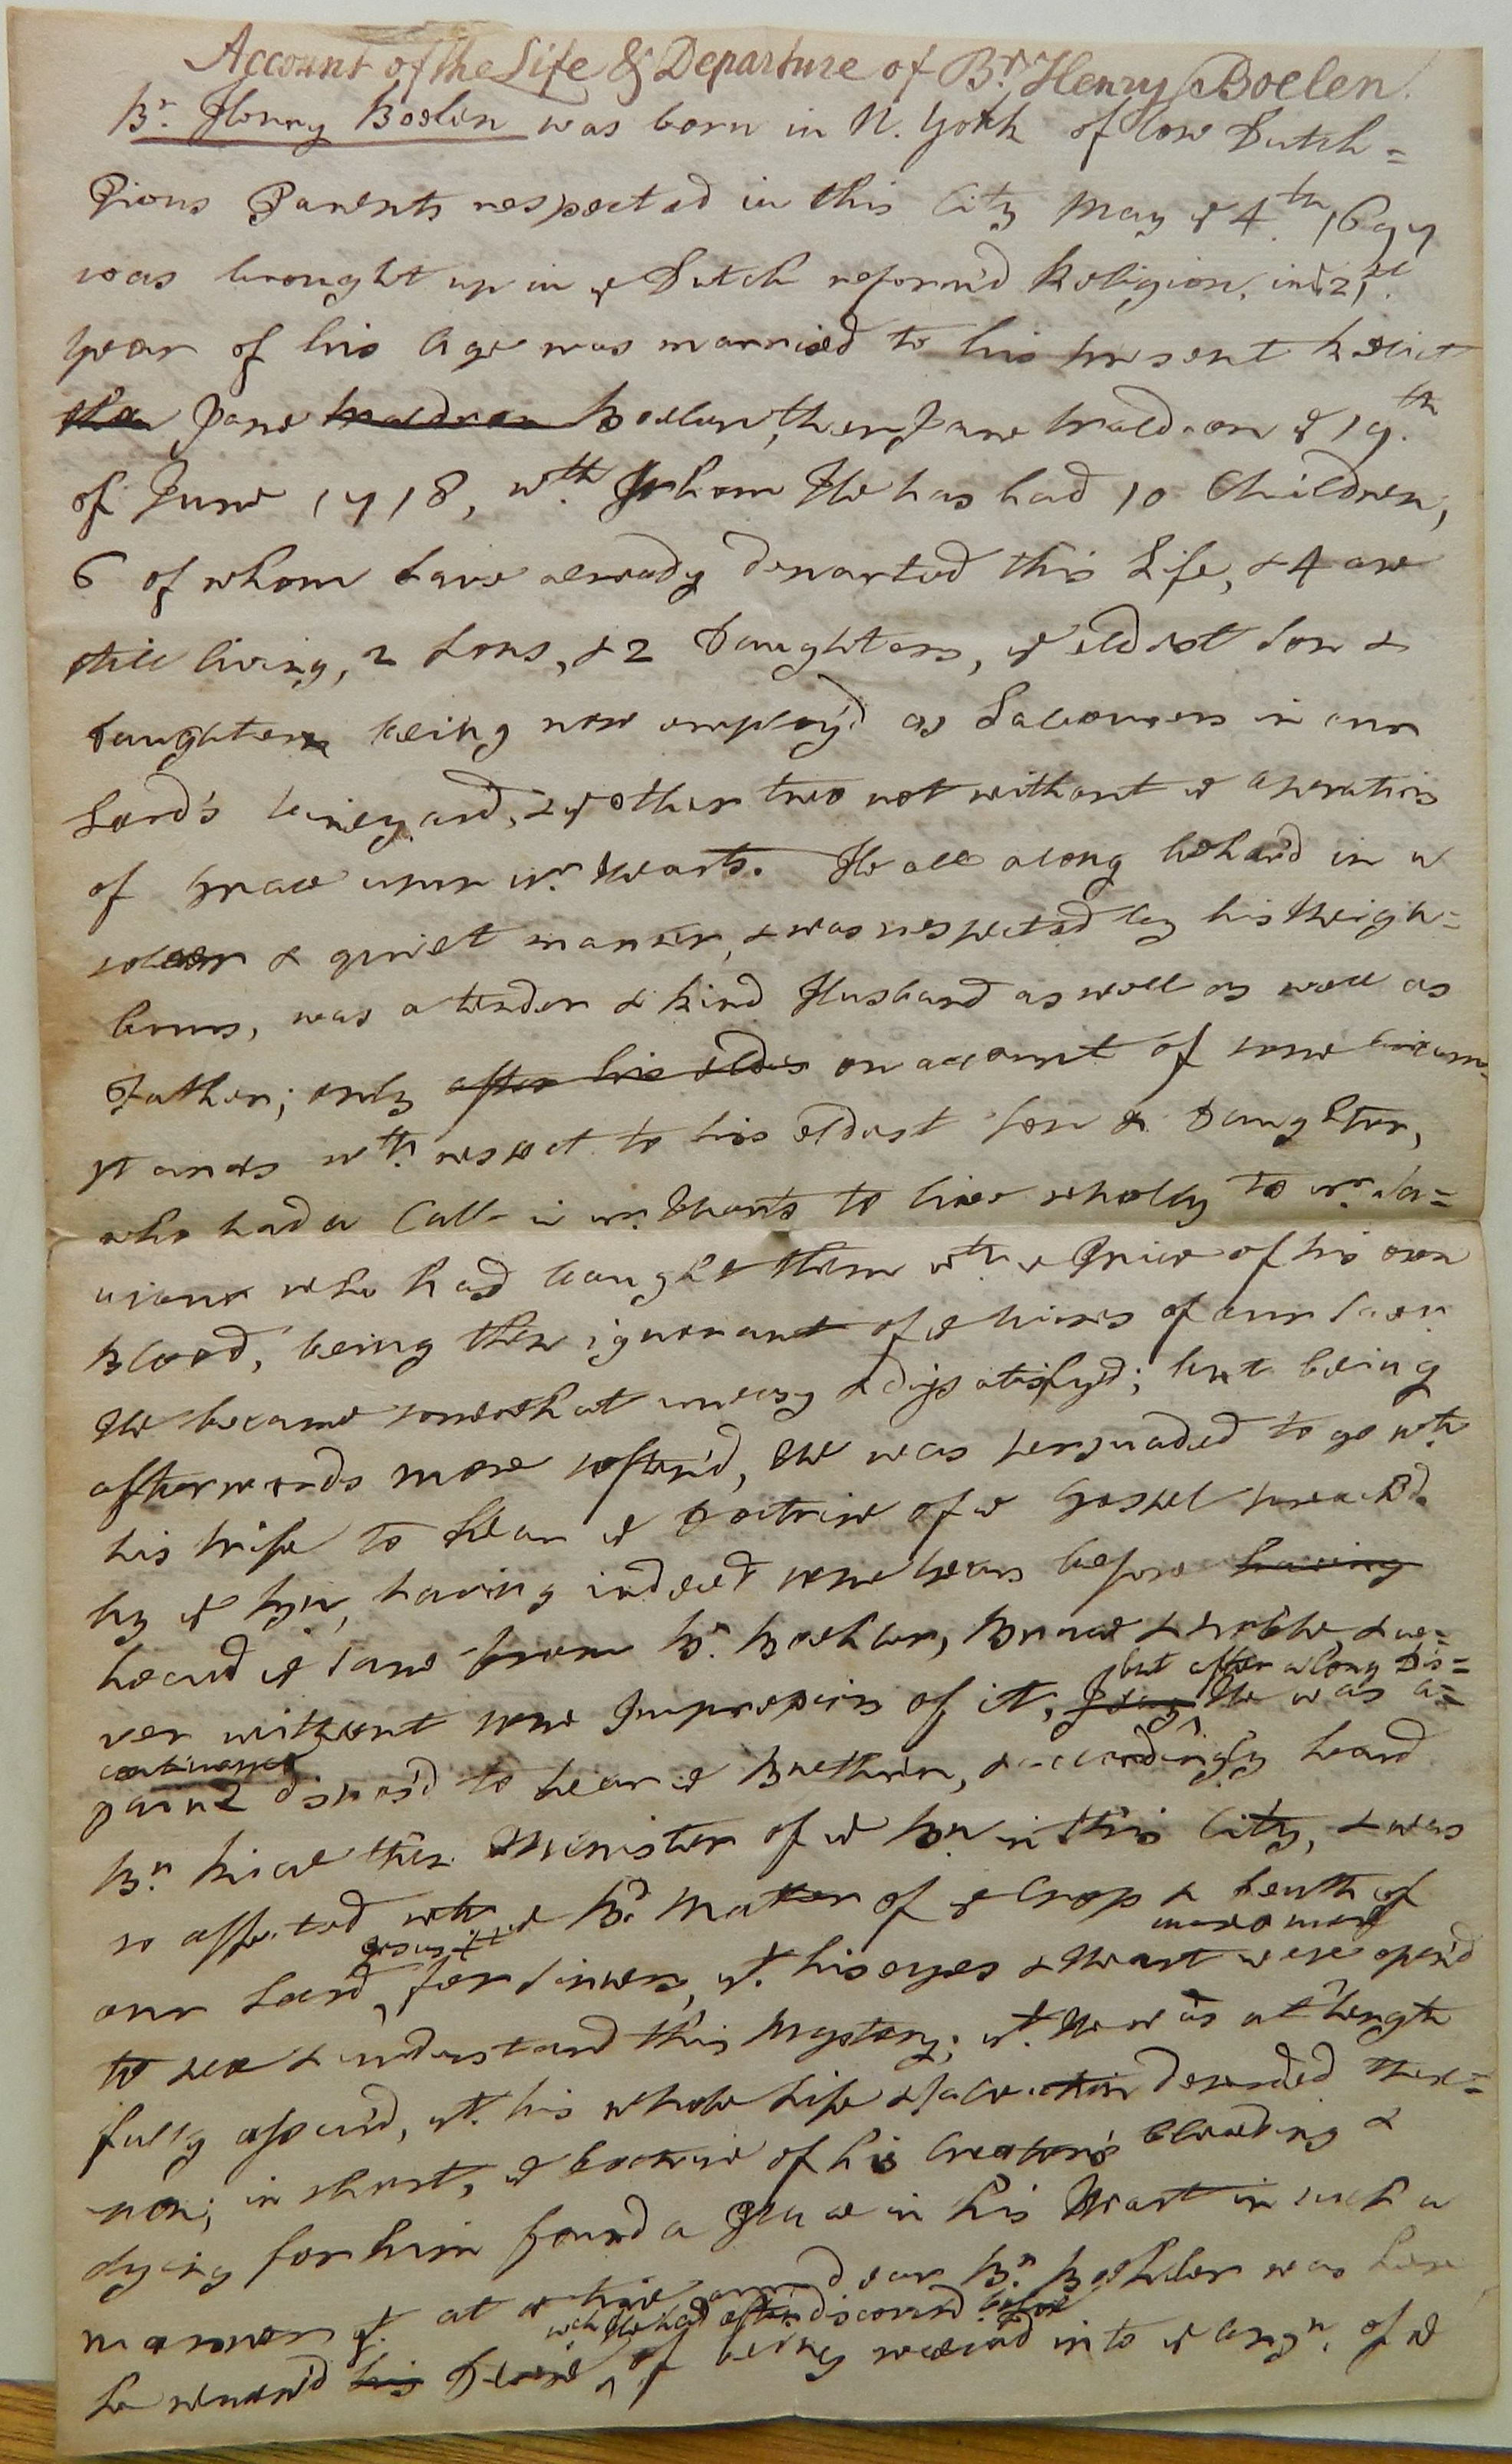 Account of the Life & Departure of Br. Henry Boelen.
Br. Henry Boelen was born in N. York of low Dutch=
Pious Parents respected in this City May ye 4.th 1697
was brought up in ye Dutch reform'd Religion, in ye 21.st
year of his Age was married to his present Relict
then Jane Waldron Boelen, then Jane Waldron ye 19.th
of June 1718, wth. whom He has had 10 Children,
6 of whom have already departed this Life, & 4 are
still living, 2 Sons, & 2 Daughters, ye eldest Son &
Daughter being now employ'd as Labourers in our
Lord's Vineyard, & ye other two not without ye operations
of Grace upon yr. Hearts. He all along behav'd in a
sober & quiet manner, & was respected by his Neigh=
bours, was a tender & kind Husband as well as well as
Father; only after his eldes on account of some Circum=
stances wth. respect to his eldest Son & Daughter,
who had a Call in yr. Hearts to live wholly to yr. Sa=
viour who had bought them wth. ye Price of his own
Blood, being then ignorant of ye of our Savr.
He became somewhat uneasy & dissatisfyd; but being
afterwards more soften'd, He was persuaded to go wth.
his Wife to hear ye Doctrine of ye Gospel preach'd
by ye Brn., having indeed some years before having
heard ye same from Br. Boehler, Bruce & & ne=
ver without some Impression of it, but after a long Dis=
continuance He was a=
gain dispos'd to hear ye Brethren, & accordingly heard
Br. Rice then Minister of ye Brn. in this City, & was
so affected wth. ye Bd. Matter of ye Cross & Death of
our Lord Jesus Xt. for Sinners, yt. his eyes & Heart were more & more open'd
to see & understand this Mystery; yt. He was at length
fully assur'd, yt. his whole Life & Salvation depended there=
upon; in short, ye Doctrine of his Creator's bleeding &
dying for him found a Place in his Heart in such a
manner yt. at a time our dear Br. Boehler was here
he renew'd his Desire, wch. He had often discover'd before of being receiv'd into ye Congn. of ye